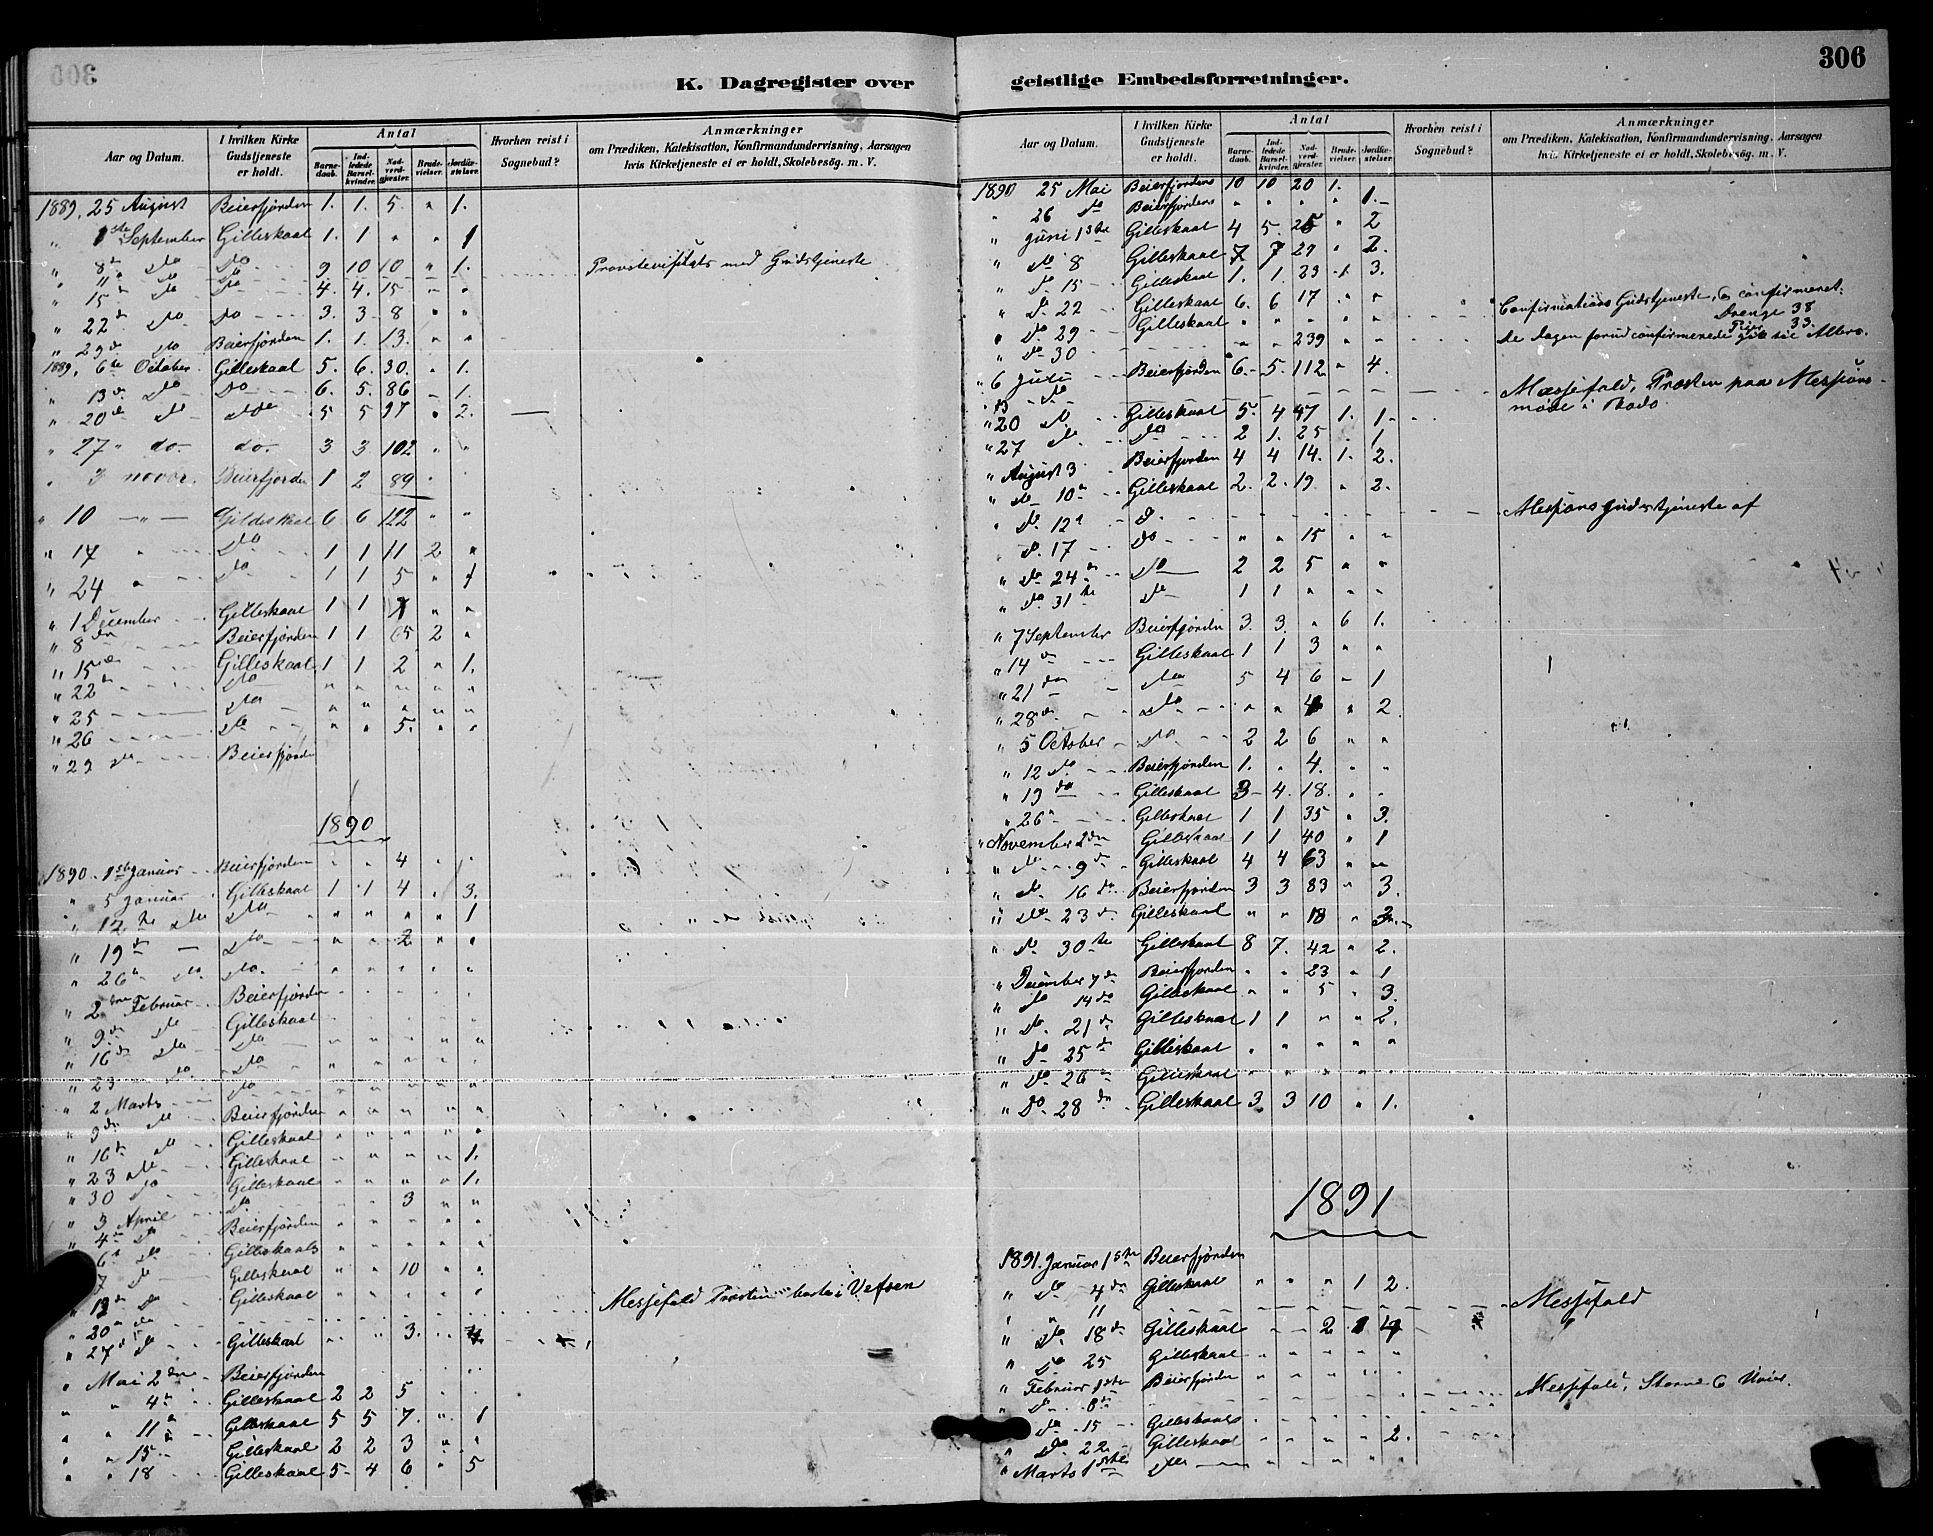 306
K. Dagregister over geistlige Embedsforretninger.
Aar og Datum. I hvilken Kirke Gudstjeneste er holdt. Antal Barne-daab. Ind-ledede Barsel-kvinder. Nad-verd-gjester. Brude-vielser. Jordfæ-stelser. Hvorhen reist i Sognebud? Anmærkninger om Prædiken, Katekisation, Konfirmandundervisning, Aarsagen hvis Kirketjeneste ei er holdt, Skolebesög. m. V.
1889. 25 August Beierfjorden 1. 1. 5. " 1.
" 1ste September Gilleskaal 1. 1 " " 1
" 8de do do 9 10 10 " 1. Provstevisitats med Gudstjeneste
" 15 do do 4. 4. 15 " "
" 22de do do 3. 3 8 " "
" 29de do Beierfjorden 1. 1. 13. " "
1889. 6te October Gilleskaal 5. 6. 30. " 1.
" 13de do do 6. 5. 86 1.
" 20de do do 5 5 97 " 2.
" 27 " do. do. 3 3 102 " "
" 3 novbr. Beierfjorden 1 2 89 "
" 10 — " — Gildeskaal 6 6 122 " "
" 17 " do 1 1 11 2 "
" 24 " do 1 1 5 " 1
" 1 December Gilleskaal 1 1 " "
" 8de Beierfjorden 1 1 5 2 "
" 15de Gilleskaal 1 1 2 " 1.
" 22 do " " " " "
" 25 do " " " " "
" 26 do " " 5. " "
" 29 do Beierfjorden
1890
1890. 1ste Januar Beierfjorden " " 4 " "
" 5 Januar Gilleskaal 1 1 4 " 3.
" 12te do do " " " " 1
" 19de do " " 2 " "
" 26de do do. " " " " "
" 2den Februar Beierfjorden
" 9de do Gilleskaal
" 16de do do " " " " "
" 23 do do " " " " "
" 2 Marts do " " " " "
" 9de do Beierfjorden " " " " "
" 16de do Gilleskaal " " " " "
" 23 do Gilleskaal " " " " 1.
" 30 do Gilleskaal " " " " 1.
" 3 April do " " 3 " "
" 4de do Beierfjorden " " " " "
6te do Gilleskaals " " " " "
7 do Gilleskaal " " 10 " "
13de do Gilleskaal " " " " "
" 20de do Messefald Præsten borte i Vefsen
" 27de do Gilleskaal " " 3. "
" Mai 2den Beierfjorden
" " 4de Gilleskaal 2 2 5 " "
" " 11te Gilleskaal 5 5 7. " 1
" " 15 Gilleskaal 2 2 3 " "
" " 18 Gilleskaal 5 4 6 " 5
Aar og Datum. I hvilken Kirke Gudstjeneste er holdt. Antal Barne-daab. Ind-ledede Barsel-kvinder. Nad-verd-gjester. Brude-vielser. Jordfæ-stelser. Hvorhen reist i Sognebud? Anmærkninger om Prædiken, Katekisation, Konfirmandundervisning, Aarsagen hvis Kirketjeneste ei er holdt, Skolebesög. m. V.
1890 25 Mai Beierfjordens 10 10 20 1.
" 26 do Beierfjordens " " " " 1.
" Juni 1ste Gilleskaal 4 5. " 2
" do 8 Gilleskaal 7 7 29 " 2.
" do 15 Gilleskaal 1. 1. 23 1. 3.
" do 22 Gilleskaal 6. 6 17 " "
" do 29 Gilleskaal " " " " " Confirmations Gudstjeneste, confirmeret. Drenge 38
" do 30 239 " " De dagen forud confirmerede gik til Alters. Piger 33.
" 6 Juli Beierfjorden 6. 5. 112 " 4.
" 13 do Messefald, Præsten paa Missions-
møde i Bodø
" 20 do Gilleskaal 5. 4 47 1. 1
" 27 do do 2 1. 25 1
" August 3 Beierfjorden 4 4 14. 1. 2.
" do 10de Gilleskaal 2. 2. 19 " 2.
" do 12te do Missionsgudstjeneste af
do 17 do " " 15 " "
" do 24de do 2 2 5 " "
" do 31te do 1 1 " " "
" 7 September Beierfjorden 3. 3. " 6 1.
" 14de Gilleskaal 1 1 3 " "
" 21de do 5 4 6 1
" 28de do " " " 2
" 5 October do 2 2 6 " "
" 12 do Beierfjorden 1. " 4. " "
" 19de Gilleskaal 3 4. 18. " "
" 26de Gilleskaal 1 1 35 " 3.
" November 2den Gilleskaal 1 1 40 " 1
" do 9de Gilleskaal 4 4 63 " "
" do 16de Beierfjorden 3 3 83 " 3.
" do 23de Gilleskaal " " 18 "
" do 30te Gilleskaal 8 7. 42 " 2.
" December 7de Beierfjorden " " 23 " 1
" do 14de Gilleskaal " " 5 " 3.
" do 21de Gilleskaal 1 1 " " 2.
" do 25de Gilleskaal " " " " "
" do 26 Gilleskaal " " " " "
" Do 28de Gilleskaal 3 3 10 " 1.
1891
1891. Januar 1ste Beierfjorden
" do 4de Gilleskaal " " " 1 2.
" " 11 Messefald
" do 18de Gilleskaal 2 1 4
" do 25 Gilleskaal " " " " "
" Februar 1ste Beierfjorden " " " " "
" do 8de Messefald, Storm & Uveir.
" do 15 Gilleskaals
" do 22 Gilleskaal " " " " 2.
" Marts 1ste do